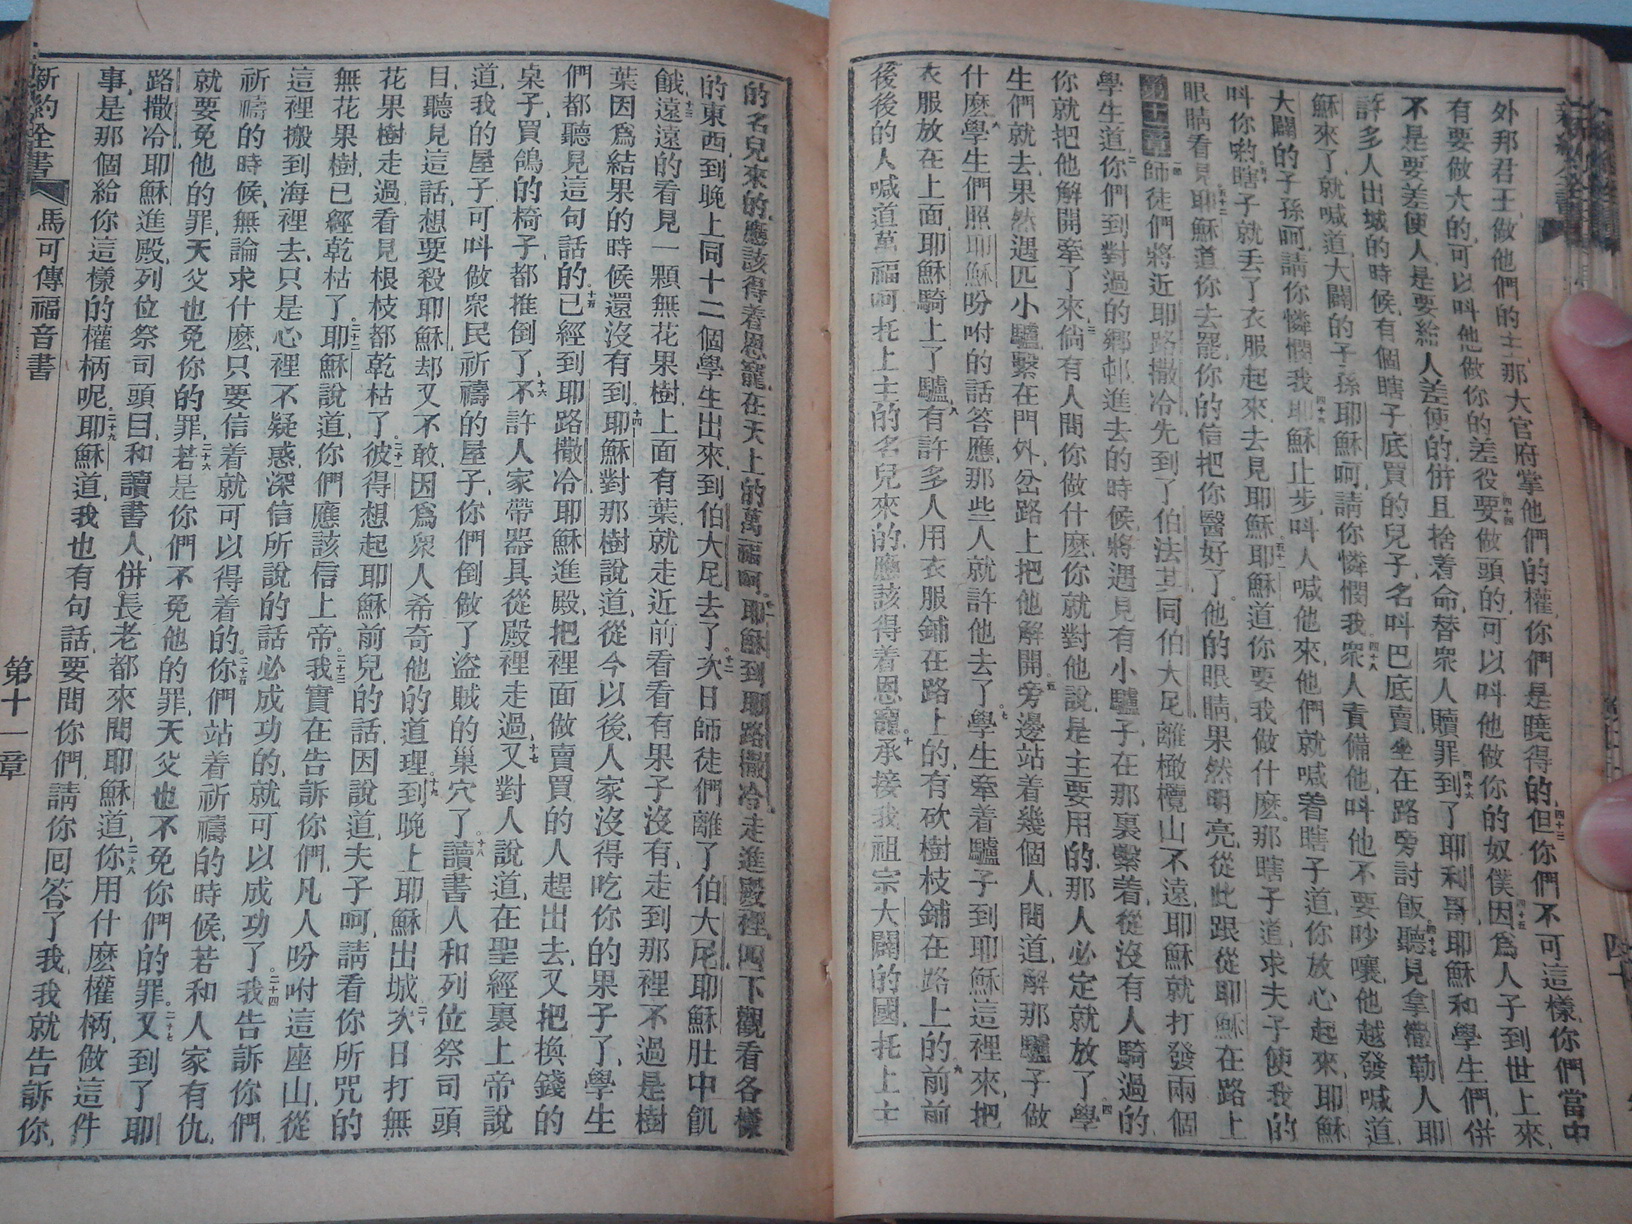 外那君王做他們的主那大官府掌他們的權你們是曉得的但你們不可這樣你們當中
有要做大的可以呌他做你的差役要做頭的可以呌他做你的奴僕因爲人子到世上來
不是要差使人是要給人差使的併且捨着命替衆人贖罪到了耶利哥耶穌和學生們併
許多人出城的時候有個瞎子底買的兒子名呌巴底賣坐在路旁討飯聽見拿撒勒人耶
穌來了就喊道大闢的子孫耶穌呵請你憐憫我衆人責備他呌他不要吵嚷他越發喊道
大闢的子孫呵請你憐憫我耶穌止步呌人喊他來他們就喊着瞎子道你放心起來耶穌
呌你喲瞎子就丢了衣服起來去見耶穌耶穌道你要我做什麽那瞎子道求夫子使我的
眼睛看見耶穌道你去罷你的信把你醫好了他的眼睛果然明亮從此跟從耶穌在路上
第十一章師徒們將近耶路撒冷先到了伯法其同伯大尼離橄欖山不遠耶穌就打發兩個
學生道你們到對過的鄉邨進去的時候將遇見有小驢子在那裏繫着從沒有人騎過的
你就把他解開牽了來倘有人問你做什麽你就對他說是主要用的那人必定就放了學
生們就去果然遇匹小驢繫在門外岔路上把他解開旁邊站着幾個人問道解那驢子做
什麽學生們照耶穌吩咐的話答應那些人就許他去了學生牽着驢子到耶穌這裡來把
衣服放在上面耶穌騎上了驢有許多人用衣服鋪在路上的有砍樹枝鋪在路上的前前
後後的人喊道萬福呵托上主的名兒來的應該得着恩寵承接我祖宗大闢的國托上主
的名兒來的應該得着恩寵在天上的萬福呵耶穌到耶路撒冷走進殿裡四下觀看各樣
的東西到晚上同十二個學生出來到伯大尼去了次日師徒們離了伯大尼耶穌肚中飢
餓遠遠的看見一顆無花果樹上面有葉就走近前看看有果子沒有走到那裡不過是樹
葉因爲結果的時候還沒有到耶穌對那樹說道從今以後人家沒得吃你的果子了學生
們都聽見這句話的已經到耶路撒冷耶穌進殿把裡面做賣買的人趕出去又把換錢的
桌子買鴿的椅子都推倒了不許人家帶器具從殿裡走過又對人說道在聖經裏上帝說
道我的屋子可呌做衆民祈禱的屋子你們倒做了盜賊的巢穴了讀書人和列位祭司頭
目聽見這話想要殺耶穌却又不敢因爲衆人希奇他的道理到晚上耶穌出城次日打無
花果樹走過看見根枝都乾枯了彼得想起耶穌前兒的話因說道夫子呵請看你所咒的
無花果樹已經乾枯了耶穌說道你們應該信上帝我實在告訴你們凡人吩咐這座山從
這裡搬到海裡去只是心裡不疑惑深信所說的話必成功的就可以成功了我告訴你們
祈禱的時候無論求什麽只要信着就可以得着的你們站着祈禱的時候若和人家有仇
就要免他的罪天父也免你的罪若是你們不免他的罪天父也不免你們的罪又到了耶
路撒冷耶穌進殿列位祭司頭目和讀書人併長老都來問耶穌道你用什麽權柄做這件
事是那個給你這樣的權柄呢耶穌道我也有句話要問你們請你囘答了我我就告訴你
新約全書 馬可傳福音書 第十一章